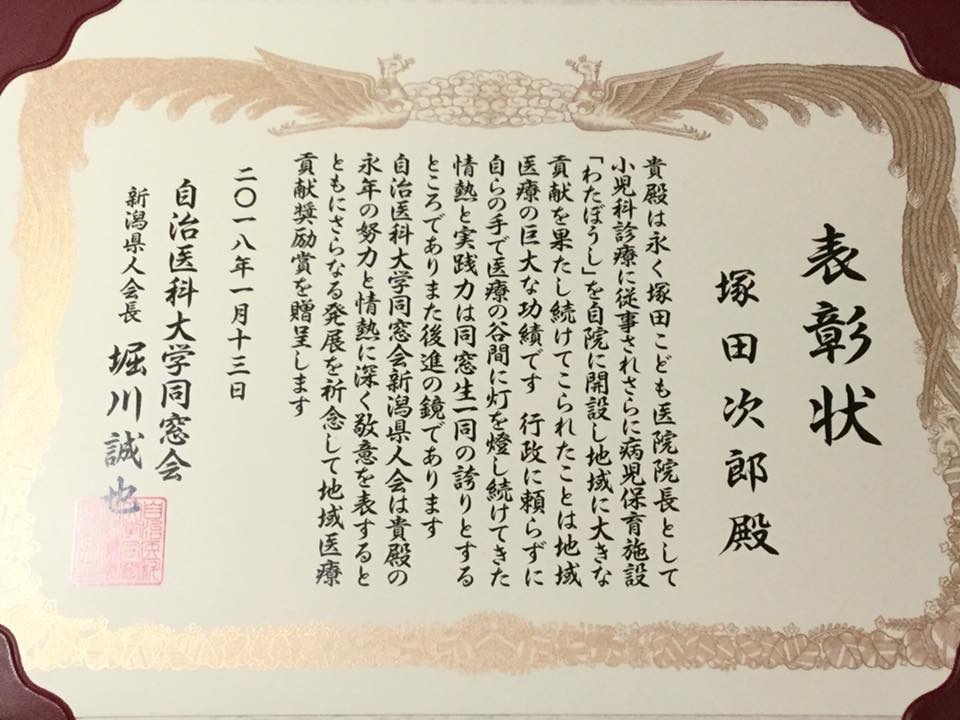 表彰状
塚田次郎殿
貴殿は永く塚田こども医院院長として
小児科診療に従事されさらに病児保育施設
「わたぼうし」を自院に開設し地域に大きな
貢献を果たし続けてこられたことは地域
医療の巨大な功績です　行政に頼らずに
自らの手で医療の谷間に灯を燈し続けてきた
情熱と実践力は同窓生一同の誇りとする
ところでありまた後進の鏡であります
自治医科大学同窓会新潟県人会は貴殿の
永年の努力と情熱に深く敬意を表すると
ともにさらなる発展を祈念して地域医療
貢献奨励賞を贈呈します
二〇一八年一月十三日
自治医科大学同窓会
新潟県人会長　堀川誠也